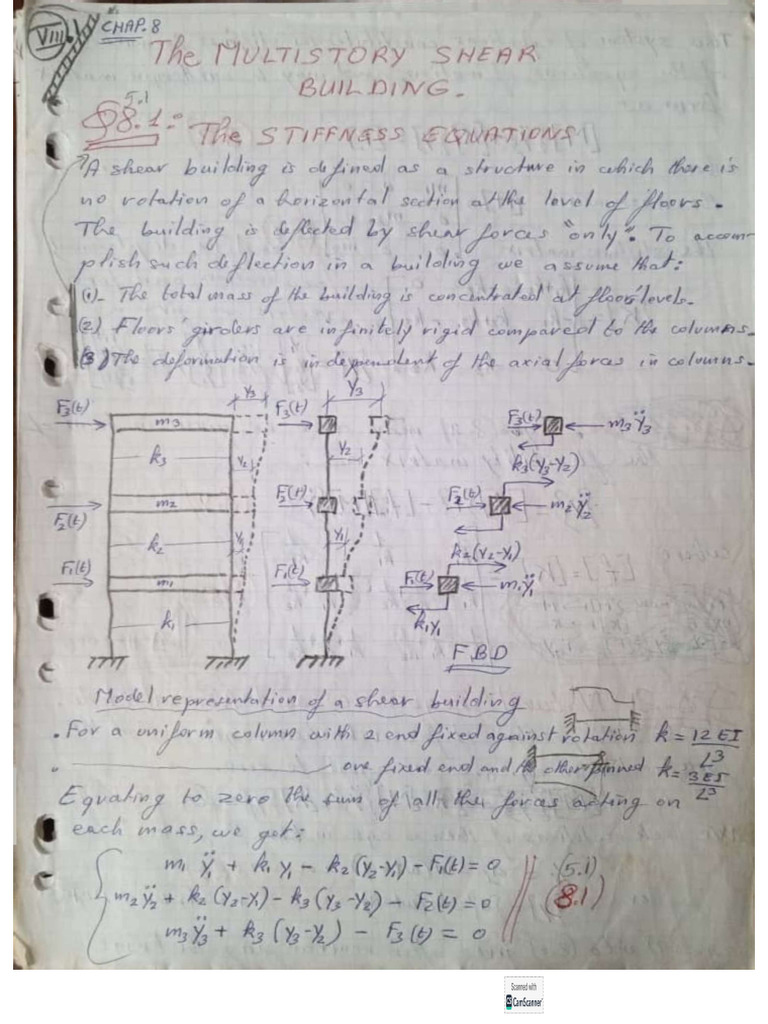 VIII
CHAP. 8
The MULTISTORY SHEAR
BUILDING.
5.1
§8.1: The STIFFNESS EQUATIONS
A shear building is defined as a structure in which there is
no rotation of a horizontal section at the level of floors.
The building is deflected by shear forces "only". To accom-
plish such deflection in a building we assume that:
(1)- The total mass of the building is concentrated at floors' levels.
(2) Floors' girders are infinitely rigid compared to the columns.
(3) The deformation is independent of the axial forces in columns.
F3(t) m3 y3 F3(t) y3 F3(t) m3ÿ3
k3 y2 y2 k3(y3-y2)
F2(t) m2 F2(t) F2(t) m2ÿ2
k2 y1 y1 k2(y2-y1)
F1(t) m1 F1(t) F1(t) m1ÿ1
k1 k1y1
FBD
Model representation of a shear building
. For a uniform column with 2 end fixed against rotation k = 12EI/L³
. one fixed end and the other pinned k = 3EI/L³
Equating to zero the sum of all the forces acting on
each mass, we get:
m1ÿ1 + k1y1 - k2(y2-y1) - F1(t) = 0 (5.1)
m2ÿ2 + k2(y2-y1) - k3(y3-y2) - F2(t) = 0 (8.1)
m3ÿ3 + k3(y3-y2) - F3(t) = 0
Scanned with
CS CamScanner